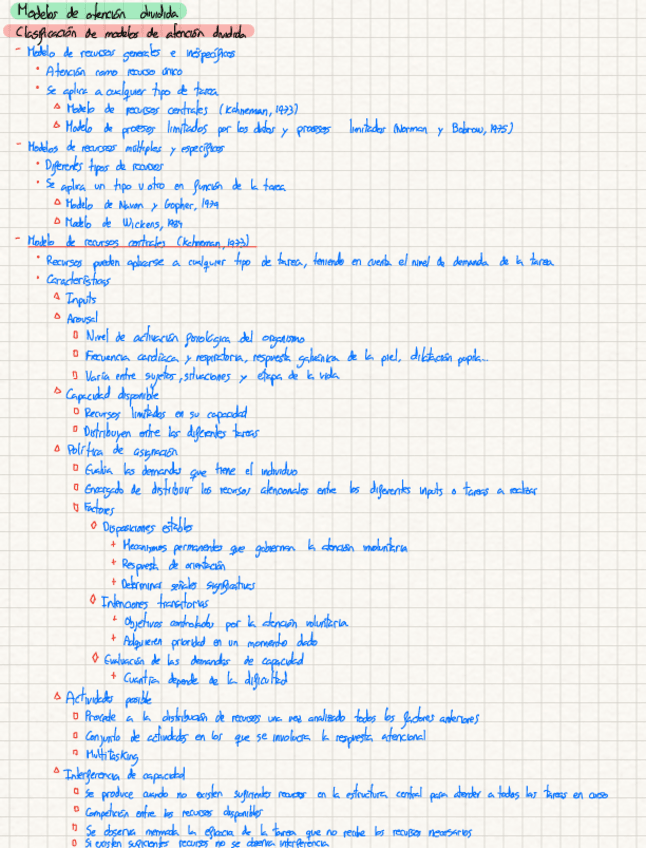 Modelos de atención dividida
Clasificación de modelos de atención dividida
- Modelo de recursos generales e inespecíficos
• Atención como recurso único
• Se aplica a cualquier tipo de tarea
△ Modelo de recursos centrales (Kahneman, 1973)
△ Modelo de procesos limitados por los datos y procesos limitados (Norman y Bobrow, 1975)
- Modelos de recursos múltiples y específicos
• Diferentes tipos de recursos
• Se aplica un tipo u otro en función de la tarea
△ Modelo de Navon y Gopher, 1979
△ Modelo de Wickens, 1984
- Modelo de recursos centrales (Kahneman, 1973)
• Recursos pueden aplicarse a cualquier tipo de tarea, teniendo en cuenta el nivel de demanda de la tarea
• Características
△ Inputs
△ Arousal
▯ Nivel de activación fisiológica del organismo
▯ Frecuencia cardíaca y respiratoria, respuesta galvánica de la piel, dilatación pupila...
▯ Varía entre sujetos, situaciones y etapa de la vida
△ Capacidad disponible
▯ Recursos limitados en su capacidad
▯ Distribuyen entre las diferentes tareas
△ Política de asignación
▯ Evalúa las demandas que tiene el individuo
▯ Encargado de distribuir los recursos atencionales entre los diferentes inputs o tareas a realizar
▯ Factores
◇ Disposiciones estables
+ Mecanismos permanentes que gobiernan la atención involuntaria
+ Respuesta de orientación
+ Determinar señales significativas
◇ Intenciones transitorias
+ Objetivos controlados por la atención voluntaria
+ Adquieren prioridad en un momento dado
◇ Evaluación de las demandas de capacidad
+ Cuantía depende de la dificultad
△ Actividades posible
▯ Procede a la distribución de recursos una vez analizado todos los factores anteriores
▯ Conjunto de actividades en los que se involucra la respuesta atencional
▯ Multitasking
△ Interferencia de capacidad
▯ Se produce cuando no existen suficientes recursos en la estructura central para atender a todas las tareas en curso
▯ Competición entre los recursos disponibles
▯ Se observa mermada la eficacia de la tarea que no recibe los recursos necesarios
▯ Si existen suficientes recursos no se observa interferencia